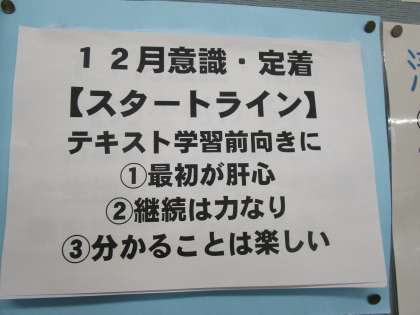 １２月意識・定着
【スタートライン】
テキスト学習前向きに
①最初が肝心
②継続は力なり
③分かることは楽しい